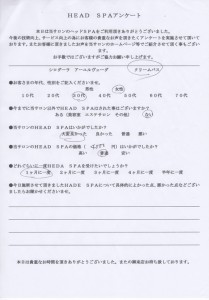 HEAD SPAアンケート
本日は当サロンのヘッドSPAをご利用頂きありがとうございました。
今後の技術向上、サービス向上の為にお客様の貴重なお声を聞きたくアンケートを実施させて頂いて
おります。またお客様に頂きましたお声を当サロンのホームページ等でご紹介させて頂く事もござい
ます。
お手数ではございますがご協力お願い申し上げます。
シロダーラ アーユルヴェーダ クリームバス
●お客さまの年代、性別をご記入ください。 男性 女性
10代 20代 30代 40代 50代 60代
●今までに当サロン以外でHEAD SPAはされた事はございますか?
ある (美容室 エステサロン その他) ない
●当サロンのHEAD SPAはいかがでしたか?
大変良かった 良かった 普通 悪い
●当サロンのHEAD SPAの価格( 円)はいかがでしたか?
高い 普通 安い
●どれくらいに一度HEAD SPAを受けたいでしょうか?
1ヶ月に一度 2ヶ月に一度 3ヶ月に一度 半年に一度
●今日施術させて頂きましたHEAD SPAについて具体的に良かった点、悪かった点などござい
ましたらお聞かせくださいませ。
本日は貴重なお時間を頂きありがとうございました。またの御来店お待ち致しております。